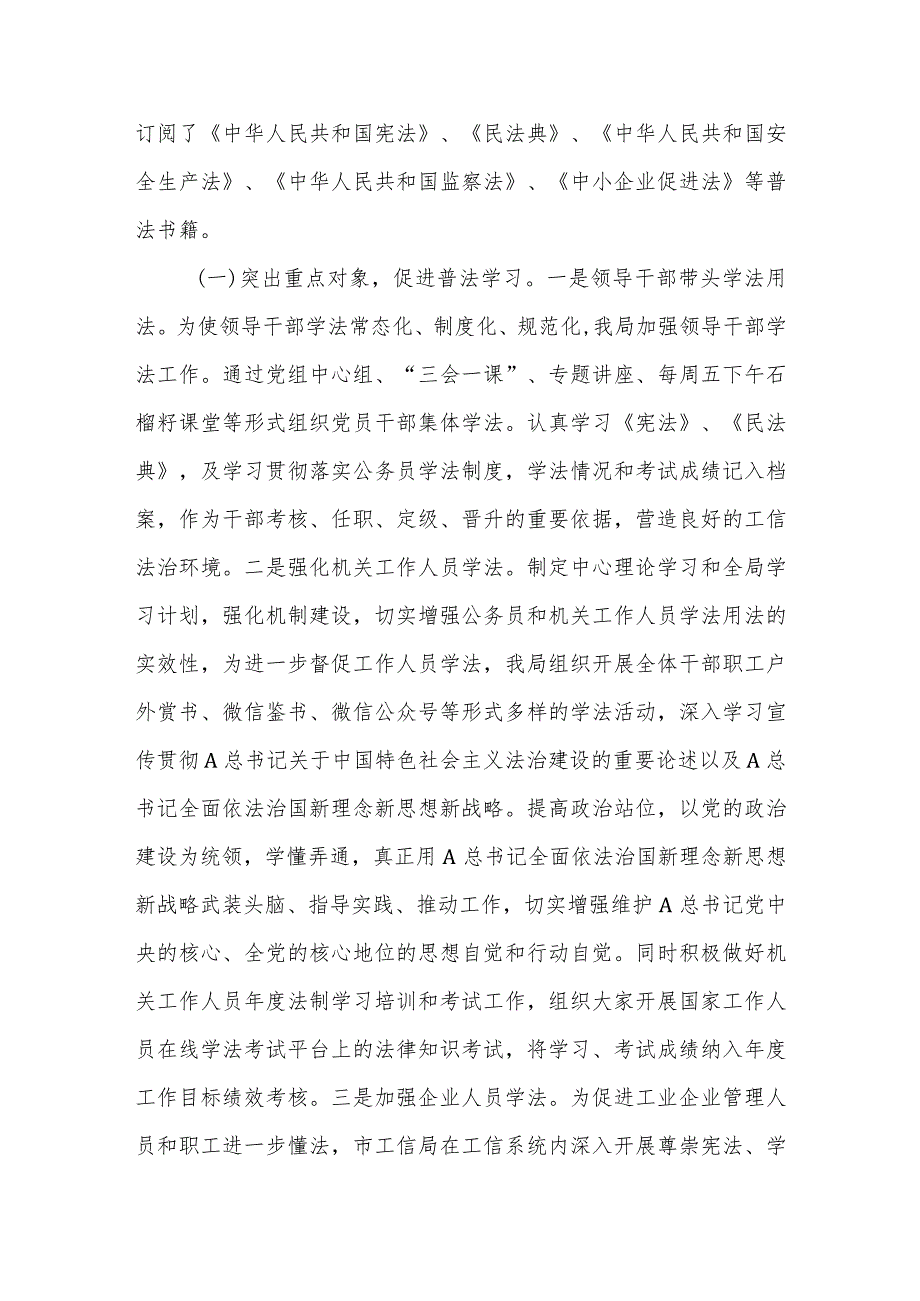 订阅了《中华人民共和国宪法》、《民法典》、《中华人民共和国安
全生产法》、《中华人民共和国监察法》、《中小企业促进法》等普
法书籍。
(一)突出重点对象，促进普法学习。一是领导干部带头学法用
法。为使领导干部学法常态化、制度化、规范化,我局加强领导干部学
法工作。通过党组中心组、“三会一课”、专题讲座、每周五下午石
榴籽课堂等形式组织党员干部集体学法。认真学习《宪法》、《民法
典》，及学习贯彻落实公务员学法制度，学法情况和考试成绩记入档
案，作为干部考核、任职、定级、晋升的重要依据，营造良好的工信
法治环境。二是强化机关工作人员学法。制定中心理论学习和全局学
习计划，强化机制建设，切实增强公务员和机关工作人员学法用法的
实效性，为进一步督促工作人员学法，我局组织开展全体干部职工户
外赏书、微信鉴书、微信公众号等形式多样的学法活动，深入学习宣
传贯彻A总书记关于中国特色社会主义法治建设的重要论述以及A总
书记全面依法治国新理念新思想新战略。提高政治站位，以党的政治
建设为统领，学懂弄通，真正用A总书记全面依法治国新理念新思想
新战略武装头脑、指导实践、推动工作，切实增强维护A总书记党中
央的核心、全党的核心地位的思想自觉和行动自觉。同时积极做好机
关工作人员年度法制学习培训和考试工作，组织大家开展国家工作人
员在线学法考试平台上的法律知识考试，将学习、考试成绩纳入年度
工作目标绩效考核。三是加强企业人员学法。为促进工业企业管理人
员和职工进一步懂法，市工信局在工信系统内深入开展尊崇宪法、学